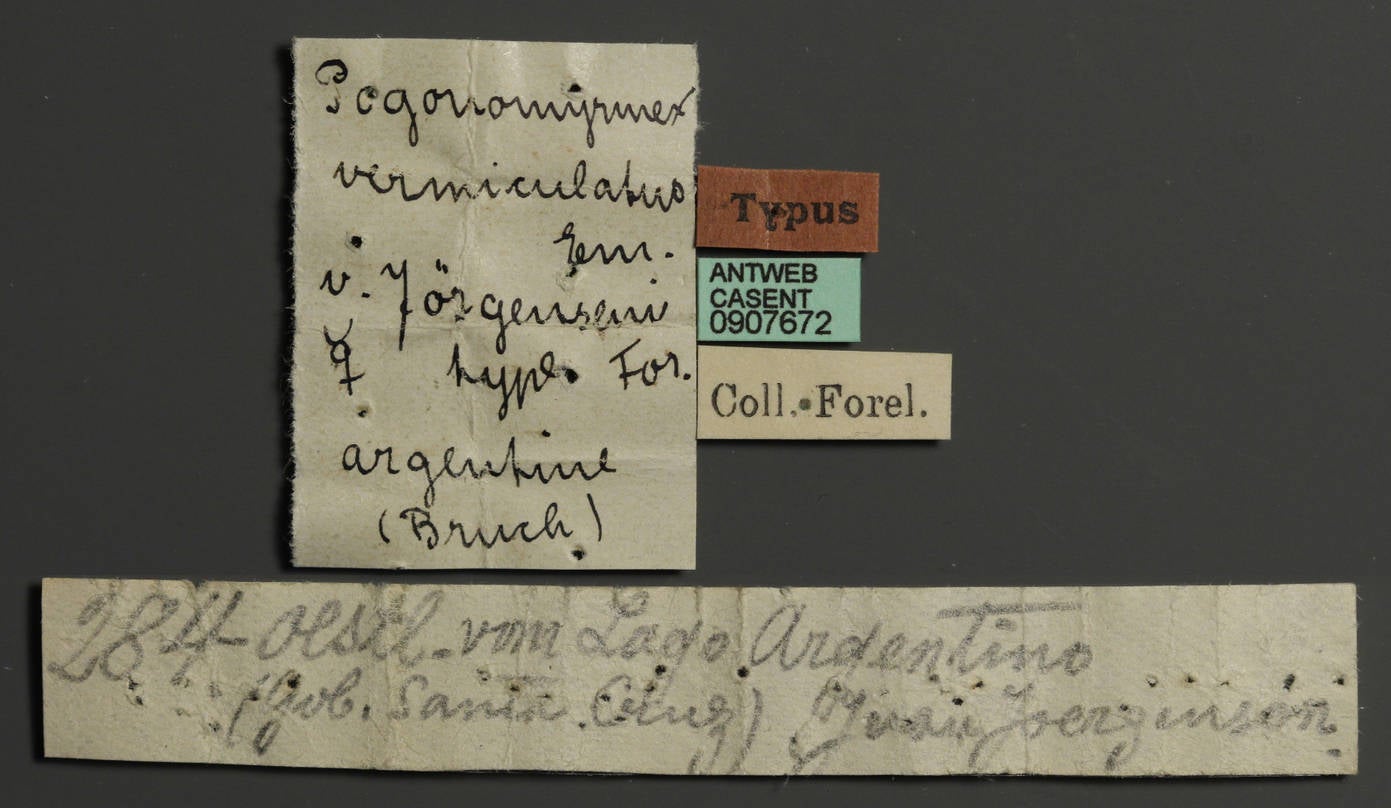 Pogonomyrmex
vermiculatus
Em.
v. Jörgenseni
☿ type For.
argentine
(Bruch)
Typus
ANTWEB
CASENT
0907672
Coll. Forel.
284 oestl. vom Lago Argentino
(Gob. Santa Cruz)